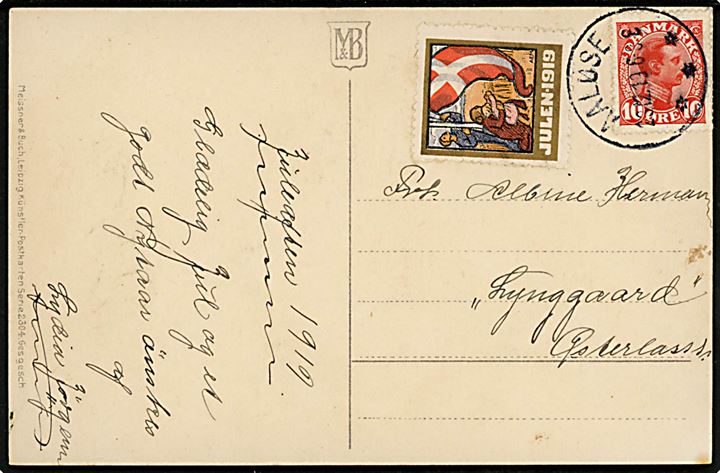 M&B
Meissner & Buch, Leipzig. Künstler-Postkarten Serie 2304. Ges gesch.
Juleaften 1919.
Glædelig Jul og et
godt Nytaar önskes
af
Lydia Jörgen
JULEN · 1919
AALØSE
DANMARK
10 10
ØRE
Frk. Albine Herman
„Lynggaard"
Østerlass